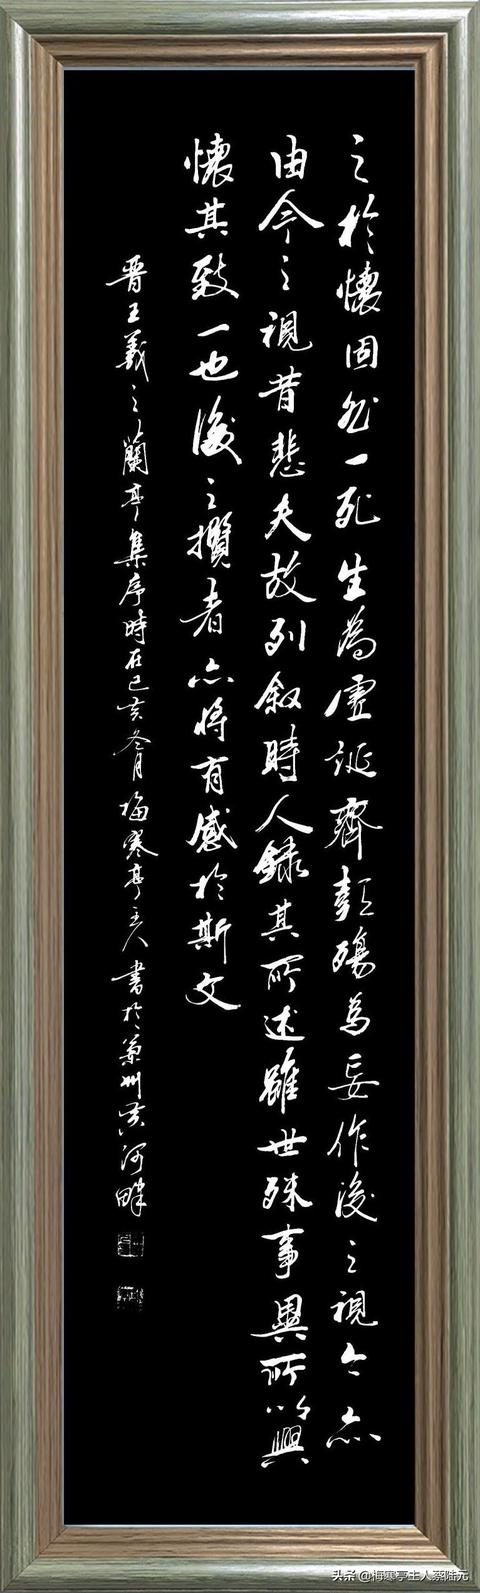 之於懷固知一死生為虛誕齊彭殤為妄作後之視今亦
由今之視昔悲夫故列敘時人錄其所述雖世殊事異所以興
懷其致一也後之攬者亦將有感於斯文
晉王羲之蘭亭集序時在己亥冬月梅寒亭主人書於蘭州黃河畔
头条@梅寒亭主人蔡陆元